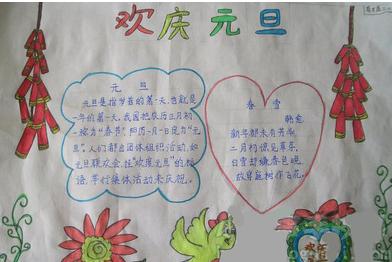 欢庆元旦
元旦
元旦是指岁首的第一天,也就是
一年的第一天,我国把农历正月初
一称为“春节”,把阳历一月一日定为“元
旦”。人们都会团体组织活动,如
元旦联欢会,挂“欢度元旦”的标
语,举行集体活动来庆祝。
春雪
韩愈
新年都未有芳华
二月初惊见草芽。
白雪却嫌春色晚,
故穿庭树作飞花。
欢庆
元旦